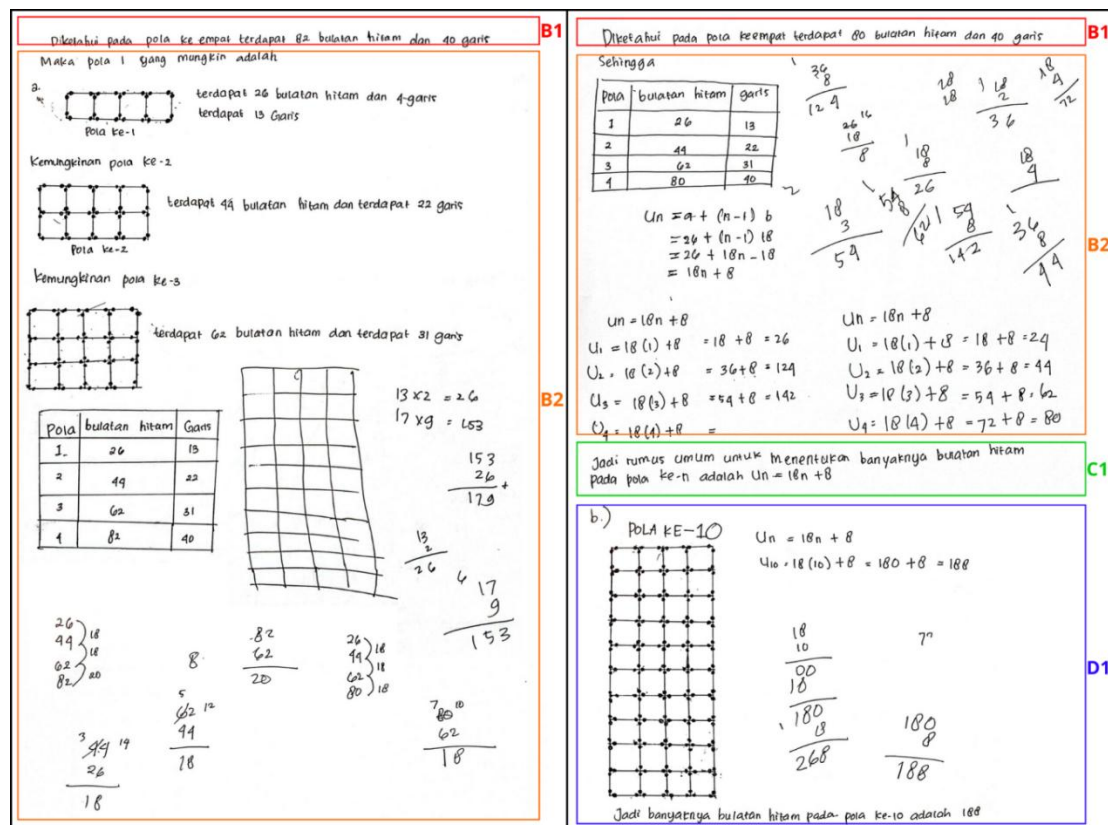 Diketahui pada pola ke empat terdapat 82 bulatan hitam dan 40 garis
B1
Maka pola 1 yang mungkin adalah
a.
terdapat 26 bulatan hitam dan 4 garis
terdapat 13 Garis
Pola ke-1
Kemungkinan pola ke-2
terdapat 44 bulatan hitam dan terdapat 22 garis
Pola ke-2
Kemungkinan pola ke-3
terdapat 62 bulatan hitam dan terdapat 31 garis
13 x 2 = 26
17 x 9 = 153
B2
Pola bulatan hitam Garis
1 26 13
2 44 22
3 62 31
4 82 40
153
26 +
179
13
2
26
6 17
9
153
26
44
62
82
18
18
20
8
82
62
20
26
44
62
80
18
18
18
3 44 14
26
18
5
62 12
44
18
7 80 10
62
18
Diketahui pada pola keempat terdapat 80 bulatan hitam dan 40 garis
B1
Sehingga
Pola bulatan hitam garis
1 26 13
2 44 22
3 62 31
4 80 40
1
36
8
124
18
18
1 18
2
36
18
4
72
26 16
18
8
1
18
8
26
18
4
2
18
3
54
1
54
8
62
1 54
8
142
1
36
8
44
B2
Un = a + (n-1) b
= 26 + (n-1) 18
= 26 + 18n - 18
= 18n + 8
Un = 18n + 8
U1 = 18(1) + 8 = 18 + 8 = 26
U2 = 18(2) + 8 = 36 + 8 = 124
U3 = 18(3) + 8 = 54 + 8 = 142
U4 = 18(4) + 8 =
Un = 18n + 8
U1 = 18(1) + 8 = 18 + 8 = 24
U2 = 18(2) + 8 = 36 + 8 = 44
U3 = 18(3) + 8 = 54 + 8 = 62
U4 = 18(4) + 8 = 72 + 8 = 80
Jadi rumus umum untuk menentukan banyaknya bulatan hitam
pada pola ke-n adalah Un = 18n + 8
C1
b.)
POLA KE-10
Un = 18n + 8
U10 = 18(10) + 8 = 180 + 8 = 188
18
10
00
18
180
18
268
180
8
188
D1
Jadi banyaknya bulatan hitam pada pola ke-10 adalah 188